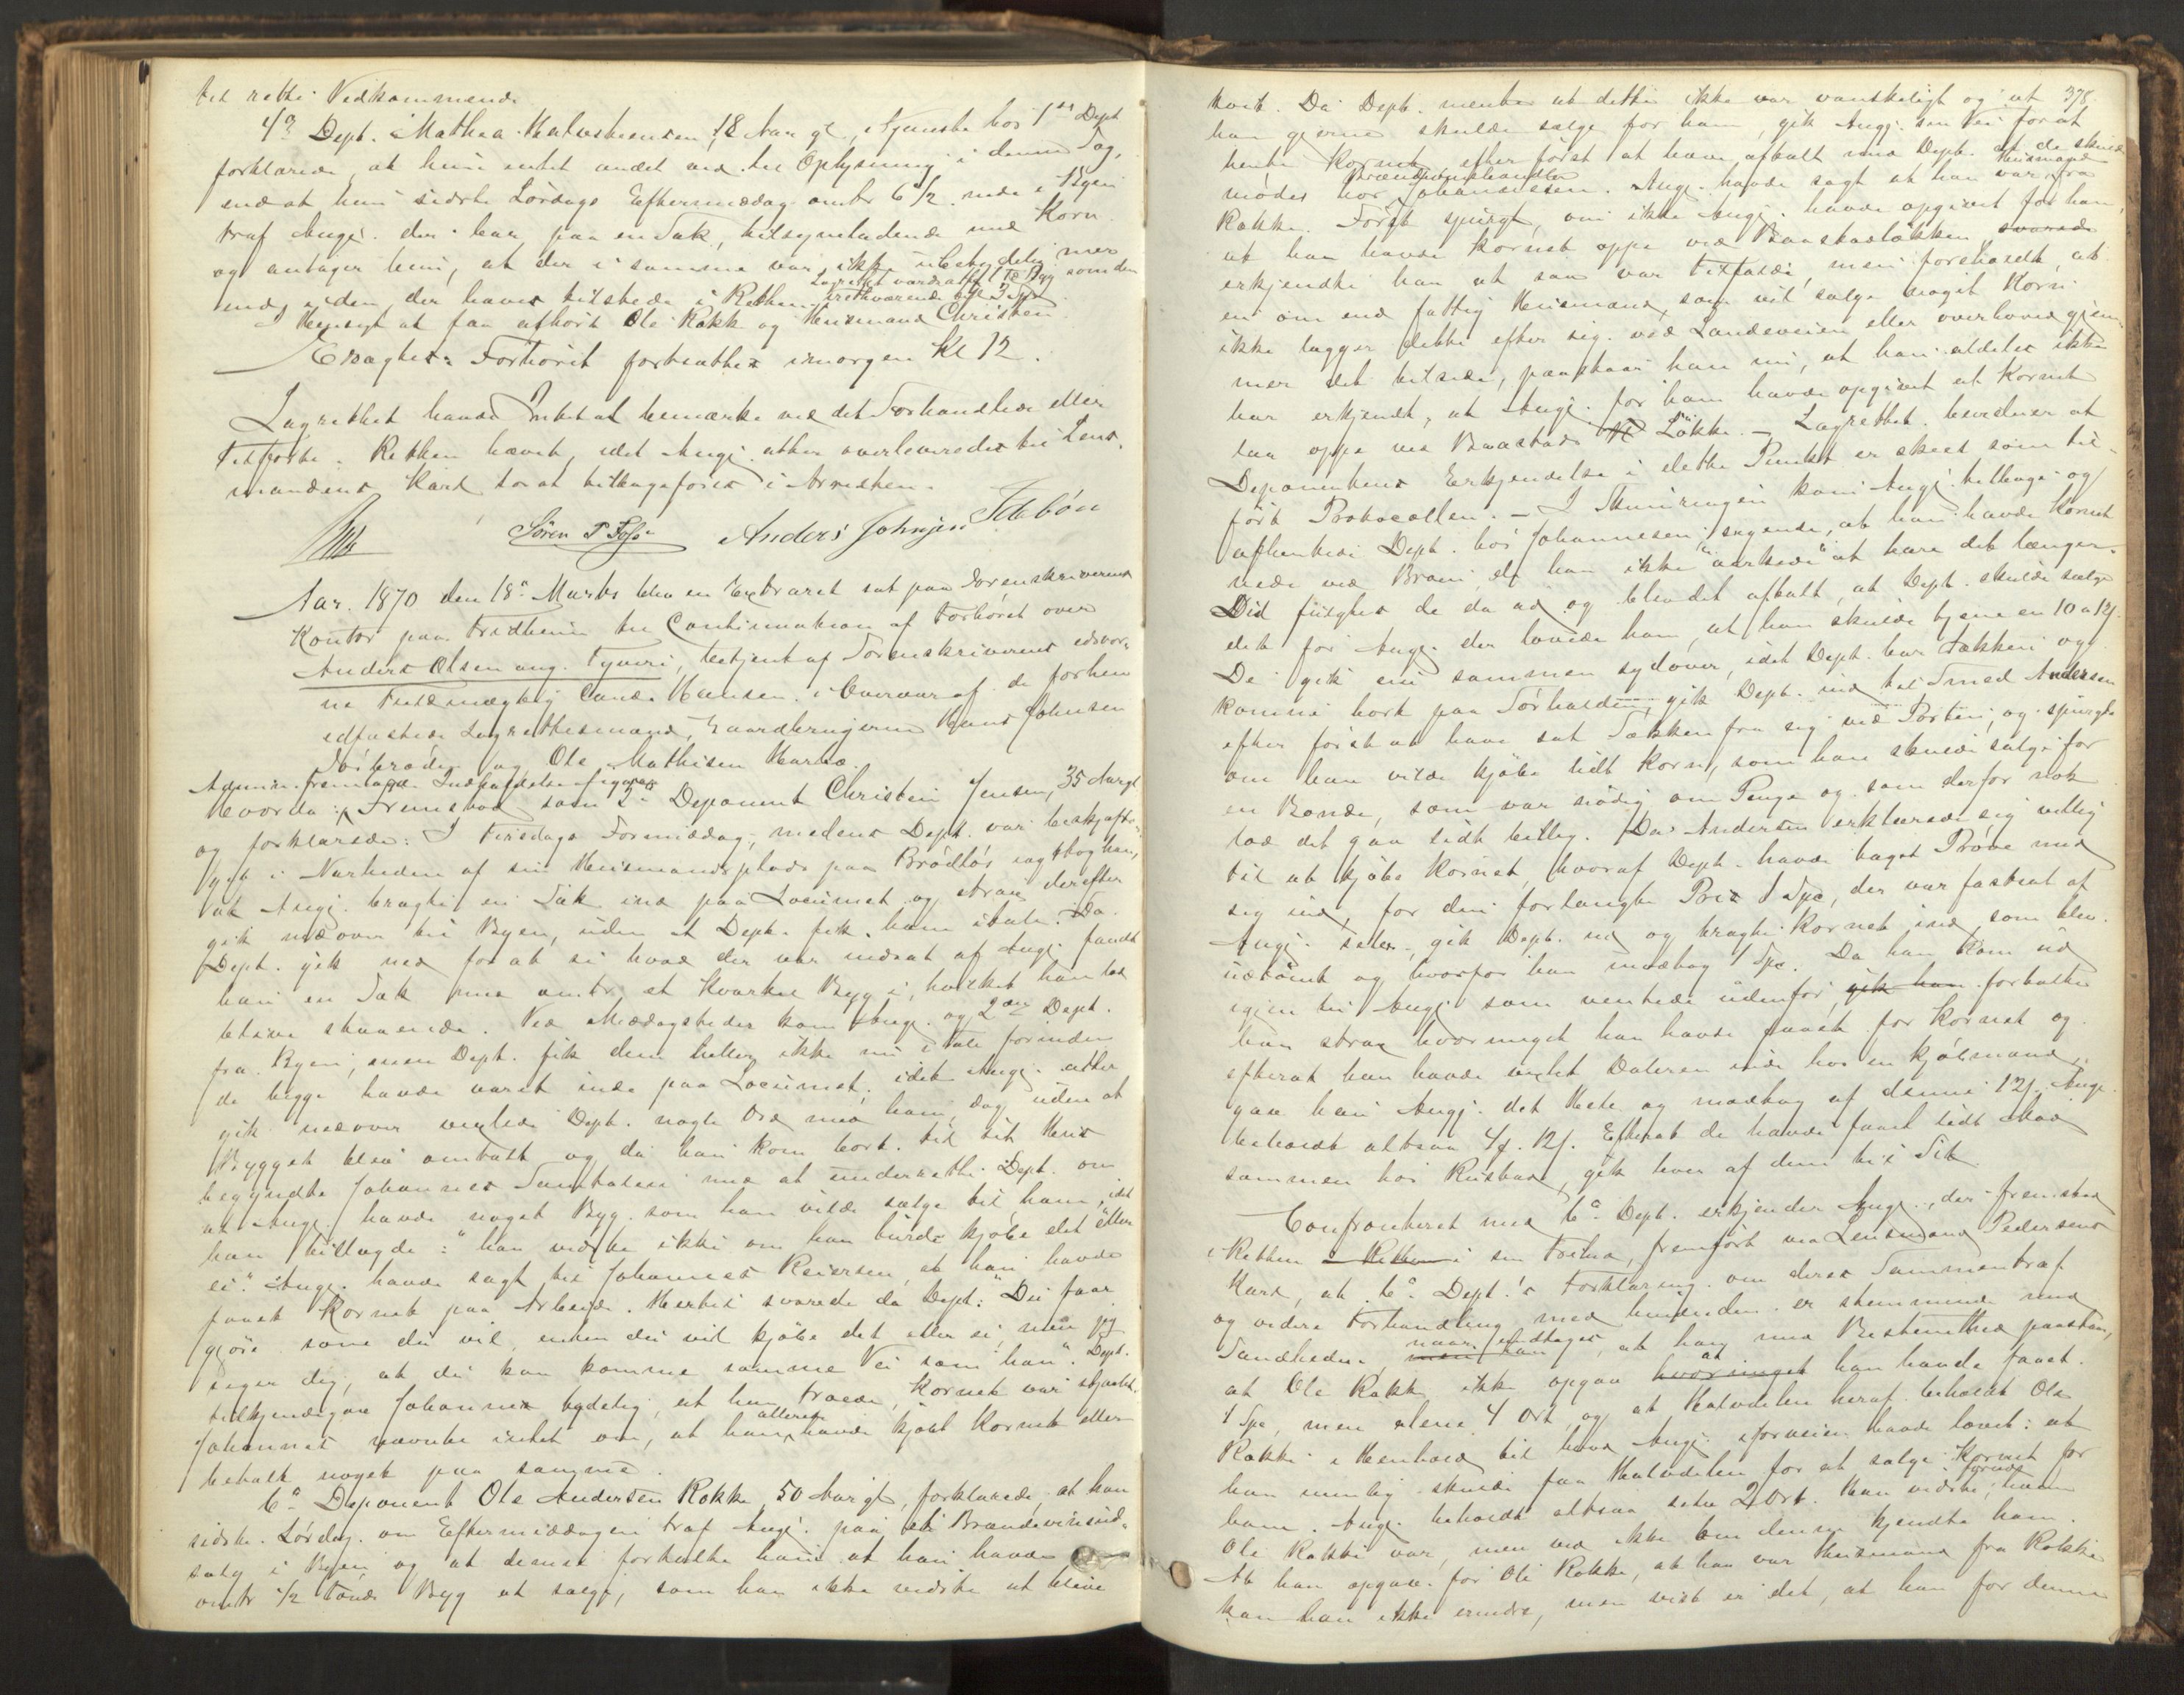 til rette Vedkommende
4de Dept. Mathea Halvorsen 18 Aar gl. tjenende hos 1ste Dept
forklarede, at hun intet andet ved til Oplysning i denne Sag,
end at hun sidste Lørdags Eftermiddag omtr 6 1/2 nede i Byen
traf Angj. der bar paa en Sæk, tilsyneladende med Korn
og antager hun, at der i samme var ikke ubetydelig mer
end i den, der haves tilstede i Retten.
Lagrettet værdsatte 1 Td Byg som den
retteværende til 3 Spd
I Hensigt at faa afhørt Ole Rakk og Husmand Christen
Eragtet: Forhøret fortsættes imorgen Kl 12.
Lagrettet havde Intet at bemærke ved det Forhandlede eller
Tilførte. Retten hævet, idet Angj. atter overleveredes til Lens-
mandens Karl for at tilbageføres i Arresten.
Søren P Foss Anders Johnsen Sebøn
Aar 1870 den 18de Marts blev en Extraret sat paa Sorenskriverens
Kontor paa Fredheim til Continuation af Forhøret over
Anders Olsen ang. Tyveri, betjent af Sorenskriverens edsvor-
ne Fuldmægtig Cand. Hansen i Overvær af de forhen
edfæstede Lagrettesmænd, Gaardbrugerne Hans Johnsen
og Ole Mathisen
Admin. fremlagde Indkaldelse
Hvorda: Fremstod som 5te Deponent Christen Jensen, 35 Aar gl
og forklarede: I Tirsdags Formiddag, medens Dept. var beskjæfti-
get i Nærheden af sin Husmandsplads paa Brødløs iagttog han,
at Angj. bragte en Sæk ind paa Locumet og strax derefter
gik nedover til Byen, uden at Dept. fik ham i tale. Da
Dept. gik ned for at se hvad der var indsat af Angj. fandt
han en Sæk med omtr. et Kvarter Byg i, hvilket han lod
blive staaende. Ved Middagstider kom Angj. og 2den Dept.
fra Byen, men Dept. fik dem heller ikke nu i Tale førinden
de begge havde været inde paa Locumet; idet Angj. atter
gik nedover vexlede Dept. nogle Ord med ham, dog uden at
Bygget blev omtalt og da han kom bort til sit Hus
begyndte Johannes Samtalen med at underrette Dept. om
at Angj. havde noget Byg som han vilde sælge til ham, idet
han tillagde: "han vidste ikke om han burde kjøbe det eller
ei." Angj. havde sagt til Johannes Reiersen at han havde
faaet Kornet paa Arbeide. Hertil svarede da Dept: "Du faar
gjøre som du vil, enten du vil kjøbe det eller ei, men jeg
siger dig, at du kan komme samme Vei som han". Dept.
tilkjendegav Johannes tydelig, at han troede, Kornet var stjaalet.
Johannes nævnte intet om, at han allerede havde kjøbt Kornet eller
betalt noget paa samme.
6te Deponent Ole Andersen Rokke 50 Aar gl, forklarede, at han
sidste Lørdag om Eftermiddagen traf Angj. paa et Brændevinsud-
salg i Byen, og at denne fortalte ham at han havde
omtr 1/2 Tønde Byg at sælge, som han ikke vidste at blive
378.
kvit. Da Dept. mente at dette ikke var vanskeligt og at
han gjerne skulde sælge for ham, gik Angj. sin Vei for at
hente Kornet efter først at have aftalt med Dept. at de skulde
mødes hos Brændevinshandler Johannesen. Angj. havde sagt at han var Husmand fra
Rakke. Først spurgt, om ikke Angj. havde opgivet for ham,
at han havde Kornet oppe ved Baastadløkken svarede
erkjendte han at saa var Tilfælde, men foreholdt, at
en om end fattig Husmand, som vil sælge noget Korn
ikke lægger dette efter sig ved Landeveien eller overhoved gjem-
mer det tilside, paastaar han nu, at han aldeles ikke
har erkjendt, at Angj. for ham havde opgivet at Kornet
laa oppe ved Baastads Løkke. – Lagrettet bevidner at
Deponentens Erkjendelse i dette Punkt er skeet som til-
ført Protocollen. – I Skumringen kom Angj. tilbage og
afhentede Dept. hos Johannesen, sigende, at han havde Kornet
nede ved Broen, da han ikke "ørkede" at bære det længer.
Did fulgtes de da ad og blev det aftalt, at Dept. skulde sælge
det for Angj. der lovede ham, at han skulde tjene en 10 a 12 s.
De gik nu sammen sydover, idet Dept. bar Sækken og
komne bort paa Torholden, gik Dept. ind til Smed Andersen
efter først at have sat Sækken fra sig ved Porten, og spurgte
om han vilde kjøbe lidt Korn, som han skulde sælge for
en Bonde, som var nødig om Penge og som derfor nok
lod det gaa lidt billig. Da Andersen erklærede sig villig
til at kjøbe Kornet, hvoraf Dept. havde taget Prøve med
sig ind, for den forlangte Pris 1 Spd, der var fastsat af
Angj. selv, gik Dept. ud og bragte Kornet ind, som blev
udtømt og hvorfor han modtog 1 Spd. Da han kom ud
igjen til Angj. som ventede udenfor, gik han fortalte
han strax hvormeget han havde faaet for Kornet og
efterat han havde vexlet Daleren inde hos en Kjøbmand,
gav han Angj. det Hele og modtog af denne 12 s. Angj.
beholdt altsaa 4 . 12 s. Efterat de havde faaet lidt Mad
sammen hos Rustad, gik hver af dem til Sit
Confronteret med 6te Dept. erkjender Angj., der fremstod
i Retten i Retten i sin Frihed, fremført ved Lensmand Pedersens
Karl, at 6te Dept.'s Forklaring om deres Sammentræf
og videre Forhandling med hinanden er stemmende med
Sandheden, men han naar undtages, at han med Bestemthed paastaar,
at Ole Rakk ikke opgav hvormeget at han havde faaet
1 Spd, men alene 4 Ort, og at Halvdelen heraf beholdt Ole
Rakke i Henhold til hvad Angj. forveien havde lovet: at
han nemlig skulde faa Halvdelen for at sælge Kornet for
ham. Angj. beholdt altsaa selv 2 Ort. Han vidste, hvem
Ole Rakke var, men ved ikke om denne kjendte ham.
At han opgav for Ole Rakke, at han var Husmand fra Rakke
kan han ikke erindre, men vist er det, at han for denne